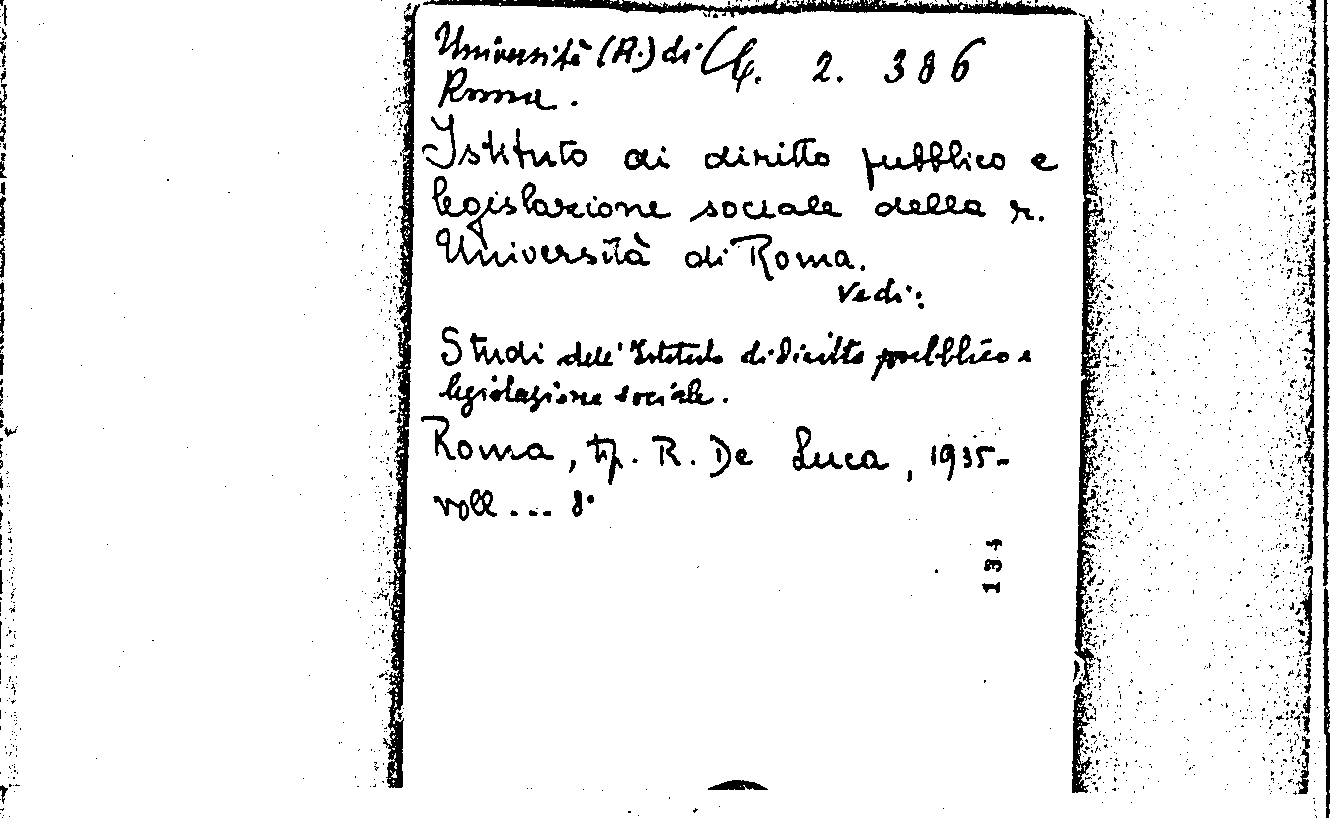 Università (R.) di
Roma.
2. 386
Istituto di diritto pubblico e
legislazione sociale della r.
Università di Roma.
Vedi:
Studi dell'Istituto di diritto pubblico e
legislazione sociale.
Roma, tip. R. De Luca, 1935-
voll ... 8°
134